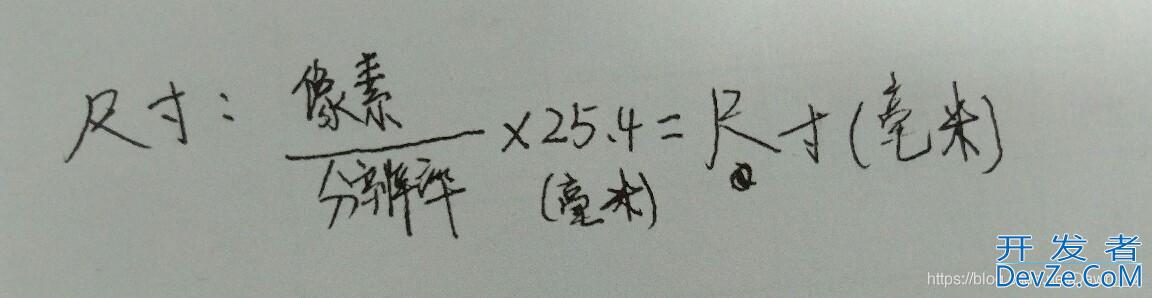 尺寸: 像素 ×25.4=尺寸(毫米)
分辨率 (毫米)
开发者
DevZe.CoM
https://blog.